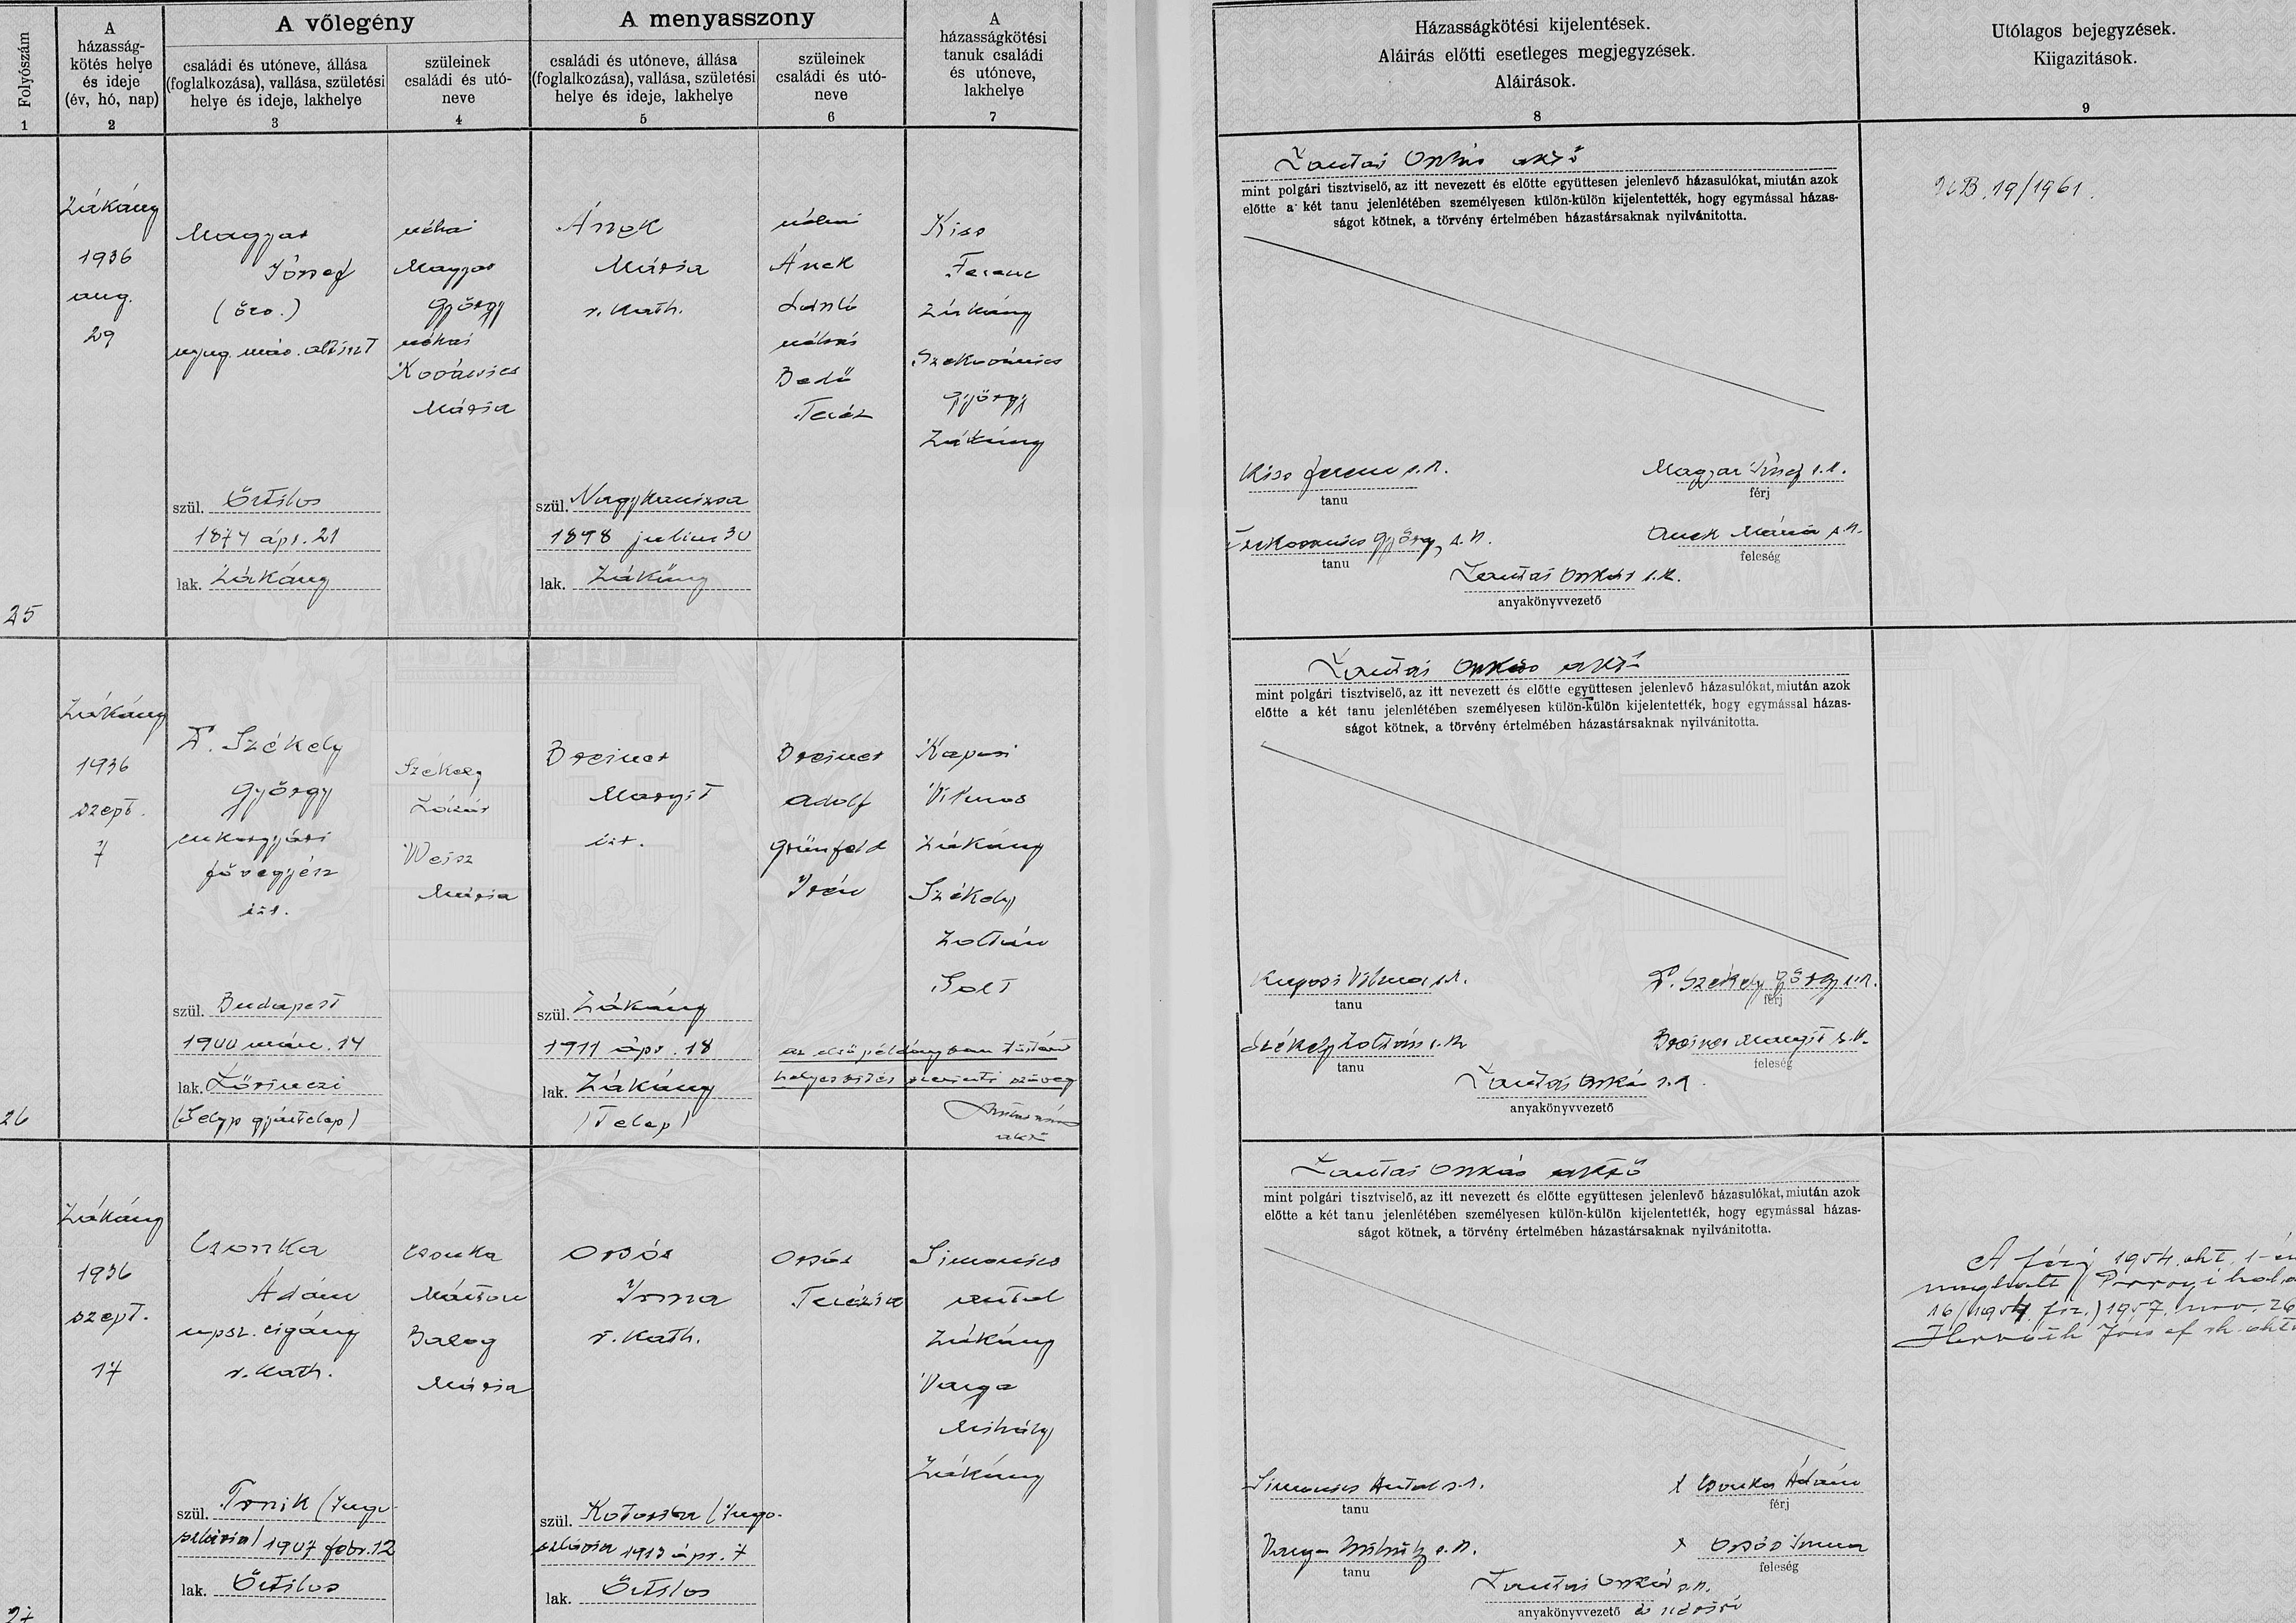 Folyószám
1
A
házasság-
kötés helye
és ideje
(év, hó, nap)
2
A vőlegény
családi és utóneve, állása
(foglalkozása), vallása, születési
helye és ideje, lakhelye
3
szüleinek
családi és utó-
neve
4
A menyasszony
családi és utóneve, állása
(foglalkozása), vallása, születési
helye és ideje, lakhelye
5
szüleinek
családi és utó-
neve
6
A
házasságkötési
tanuk családi
és utóneve,
lakhelye
7
Házasságkötési kijelentések.
Aláirás előtti esetleges megjegyzések.
Aláirások.
8
Utólagos bejegyzések.
Kiigazitások.
9
25
Zákány
1936
aug.
29
Magyar
József
(özv.)
nyug. máv. altiszt
szül. Őrtilos
1874 ápr. 21
lak. Zákány
néhai
Magyar
György
néhai
Kovácsics
Mária
Ánek
Mária
r. kath.
szül. Nagykanizsa
1898 julius 30
lak. Zákány
néhai
Ánek
László
néhai
Bedő
Teréz
Kiss
Ferenc
Zákány
Szekovánics
György
Zákány
Lantai Oszkár akvő
mint polgári tisztviselő, az itt nevezett és előtte együttesen jelenlevő házasulókat, miután azok
előtte a két tanu jelenlétében személyesen külön-külön kijelentették, hogy egymással házas-
ságot kötnek, a törvény értelmében házastársaknak nyilvánitotta.
Kiss Ferenc s.k.
tanu
Magyar József s.k.
férj
György s.k.
tanu
Anek Mária s.k.
feleség
Lantai Oszkár s.k.
anyakönyvvezető
19/1961.
26
Zákány
1936
szept.
7
Dr. Székely
György
cukorgyári
fővegyész
izr.
szül. Budapest
1900 márc. 14
lak. Lőrinczi
(Selyp gyártelep)
Székely
Lázár
Weisz
Mária
Breiner
Margit
izr.
szül. Zákány
1911 ápr. 18
lak. Zákány
(Telep)
Breiner
Adolf
Grünfeld
Irén
az első példányban történt
helyesbítés szerinti szöveg
Kaposi
Vilmos
Zákány
Székely
Zoltán
Solt
akvő
Lantai Oszkár akvő
mint polgári tisztviselő, az itt nevezett és előtte együttesen jelenlevő házasulókat, miután azok
előtte a két tanu jelenlétében személyesen külön-külön kijelentették, hogy egymással házas-
ságot kötnek, a törvény értelmében házastársaknak nyilvánitotta.
Kaposi Vilmos s.k.
tanu
Dr. Székely György s.k.
férj
Székely Zoltán s.k.
tanu
Breiner Margit s.k.
feleség
Lantai Oszkár s.k.
anyakönyvvezető
27
Zákány
1936
szept.
17
Csonka
Ádám
napsz. cigány
r. kath.
szül. (Jugo-
szlávia) 1907 febr. 12
lak. Őrtilos
Csonka
Márton
Balog
Mária
Orsós
Irma
r. kath.
szül. (Jugo-
szlávia 1913 ápr. 7
lak. Őrtilos
Orsós
Terézia
Simonics
Antal
Zákány
Varga
Mihály
Zákány
Lantai Oszkár akvő
mint polgári tisztviselő, az itt nevezett és előtte együttesen jelenlevő házasulókat, miután azok
előtte a két tanu jelenlétében személyesen külön-külön kijelentették, hogy egymással házas-
ságot kötnek, a törvény értelmében házastársaknak nyilvánitotta.
Simonics Antal s.k.
tanu
x Csonka Ádám
férj
Varga Mihály s.k.
tanu
x Orsós Irma
feleség
Lantai Oszkár s.k.
anyakönyvvezető és névíró
A férj 1954. okt. 1-én
meghalt (Porrogi hal. a
16/1954 fsz.) 1957. nov. 26
Horváth József